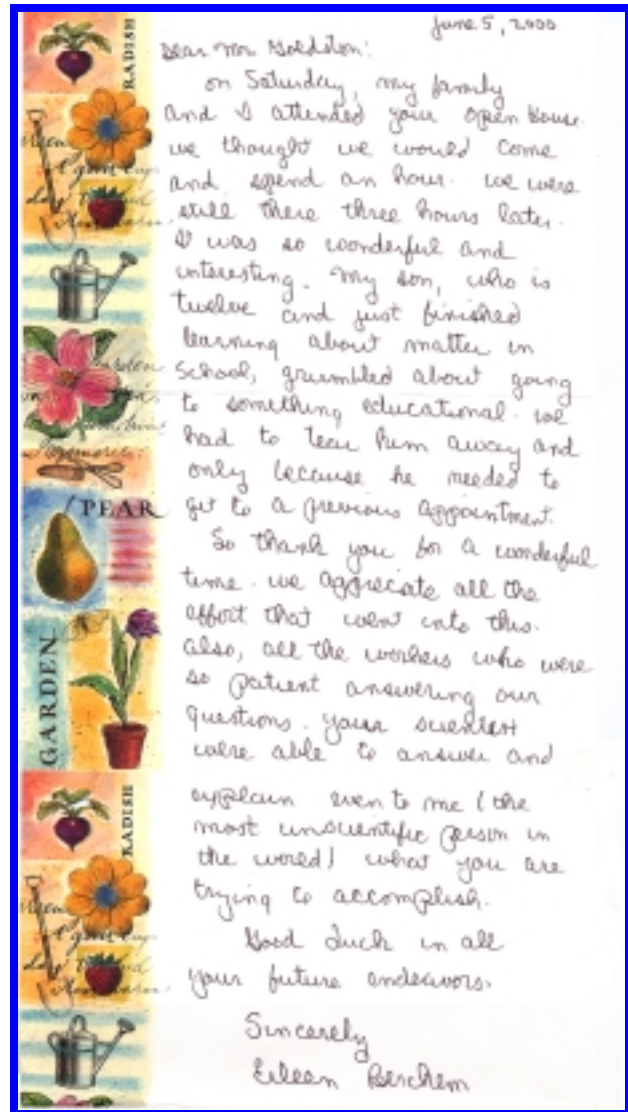 June 5, 2000
Dear Mr. Goldston:
on Saturday, my family
and I attended your open house.
we thought we would come
and spend an hour. we were
still there three hours later.
It was so wonderful and
interesting. My son, who is
twelve and just finished
learning about matter in
School, grumbled about going
to something educational. we
had to tear him away and
only because he needed to
get to a previous appointment.
So thank you for a wonderful
time. we aggreciate all the
effort that went into this.
also, all the workers who were
so patient answering our
questions. your scientist
were able to answer and
explain even to me (the
most unscientific person in
the world) what you are
trying to accomplish.
Good luck in all
your future endeavors.
Sincerely
Eileen Berchem
RADISH
PEAR
GARDEN
RADISH